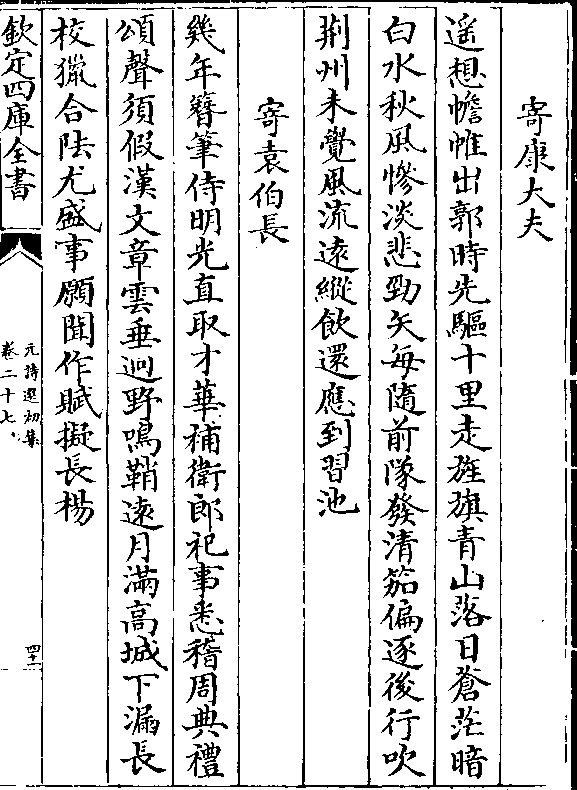 寄康大夫
遥想幨帷出郭時先驅十里走旌旗青山落日蒼茫暗
白水秋風慘淡悲勁矢每隨前隊發清笳偏逐後行吹
荆州未覺風流逺縱飲還應到習池
寄袁伯長
幾年簪筆侍明光直取才華補衛郎祀事悉稽周典禮
頌聲須假漢文章雲垂迥野鳴鞘逺月滿高城下漏長
校獵合陡尤盛事願聞作賦擬長楊
欽定四庫全書
元詩選初集
卷二十七